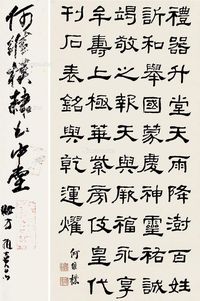 禮器升堂天雨降澍百姓
訢和舉國蒙慶神靈祐誠
竭敬之報天與厥福永享
牟壽上極華紫旁伎皇代
刊石表銘與乾運燿
何維樸
何維樸隸書中堂